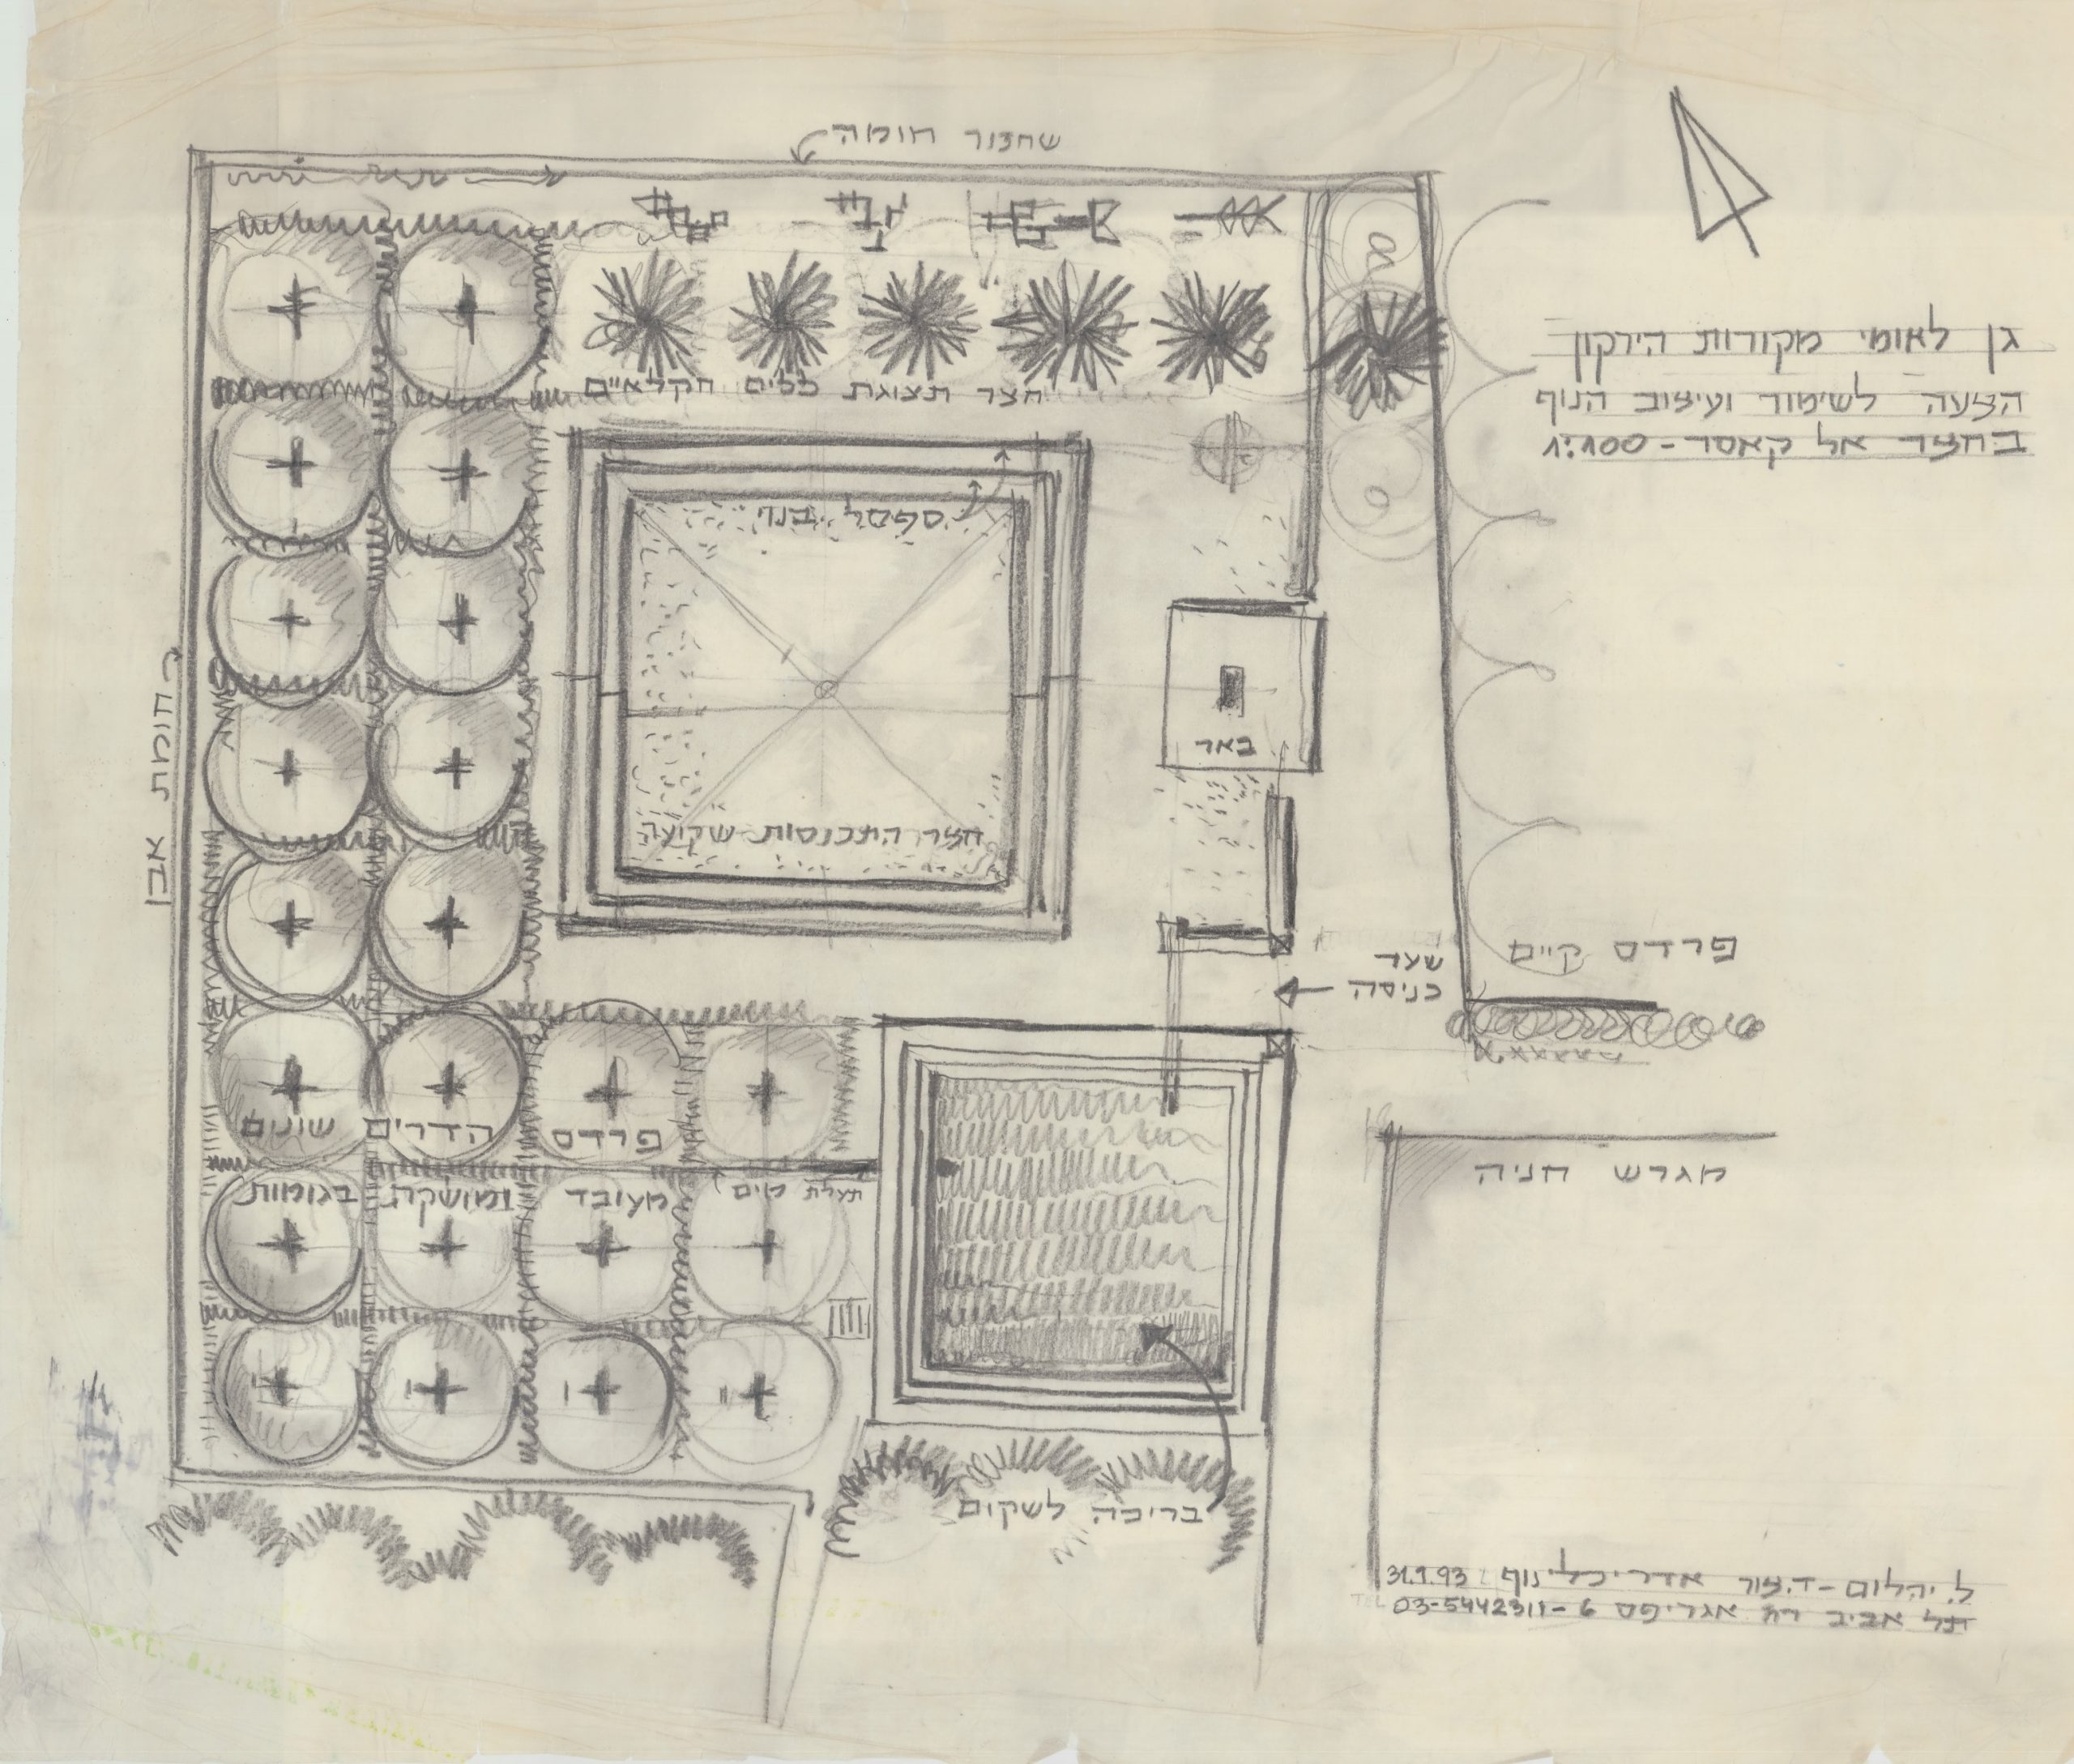 שחזור חומה
גן לאומי מקורות הירקון
הצעה לשימור ועיצוב הנוף
בחצר אל קאסר - 1:100
חצר תצוגת כלים חקלאיים
ספסל בנוי
חומת אבן
באר
חצר התכנסות שקועה
פרדס קיים
שער
כניסה
פרדס הדרים שונים
מעובד ומושקה בגומות
תעלת מים
מגרש חניה
בריכה לשקום
ל. יהלום - ד. צור אדריכלי נוף 31.1.93
תל אביב רח אגריפס 6 - 03-5442311